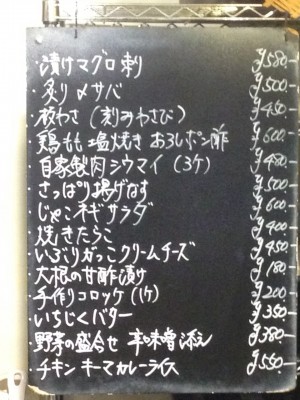 ・漬けマグロ刺 ¥580
・炙り〆サバ ¥500
・板わさ（刻みわさび） ¥450
・鶏もも塩焼き おろしポン酢 ¥600
・自家製肉シウマイ（3ケ） ¥480
・さっぱり揚げなす ¥500
・じゃこネギサラダ ¥600
・焼きたらこ ¥400
・いぶりがっこクリームチーズ ¥450
・大根の甘酢漬け ¥180
・手作りコロッケ（1ケ） ¥200
・いちじくバター ¥350
・野菜の盛合せ 辛味噌添え ¥380
・チキンキーマカレーライス ¥550